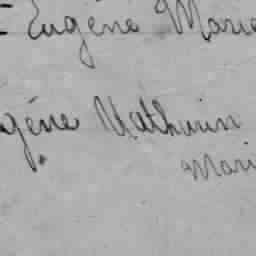 Eugéne Marie
gène Mathurin
Mari